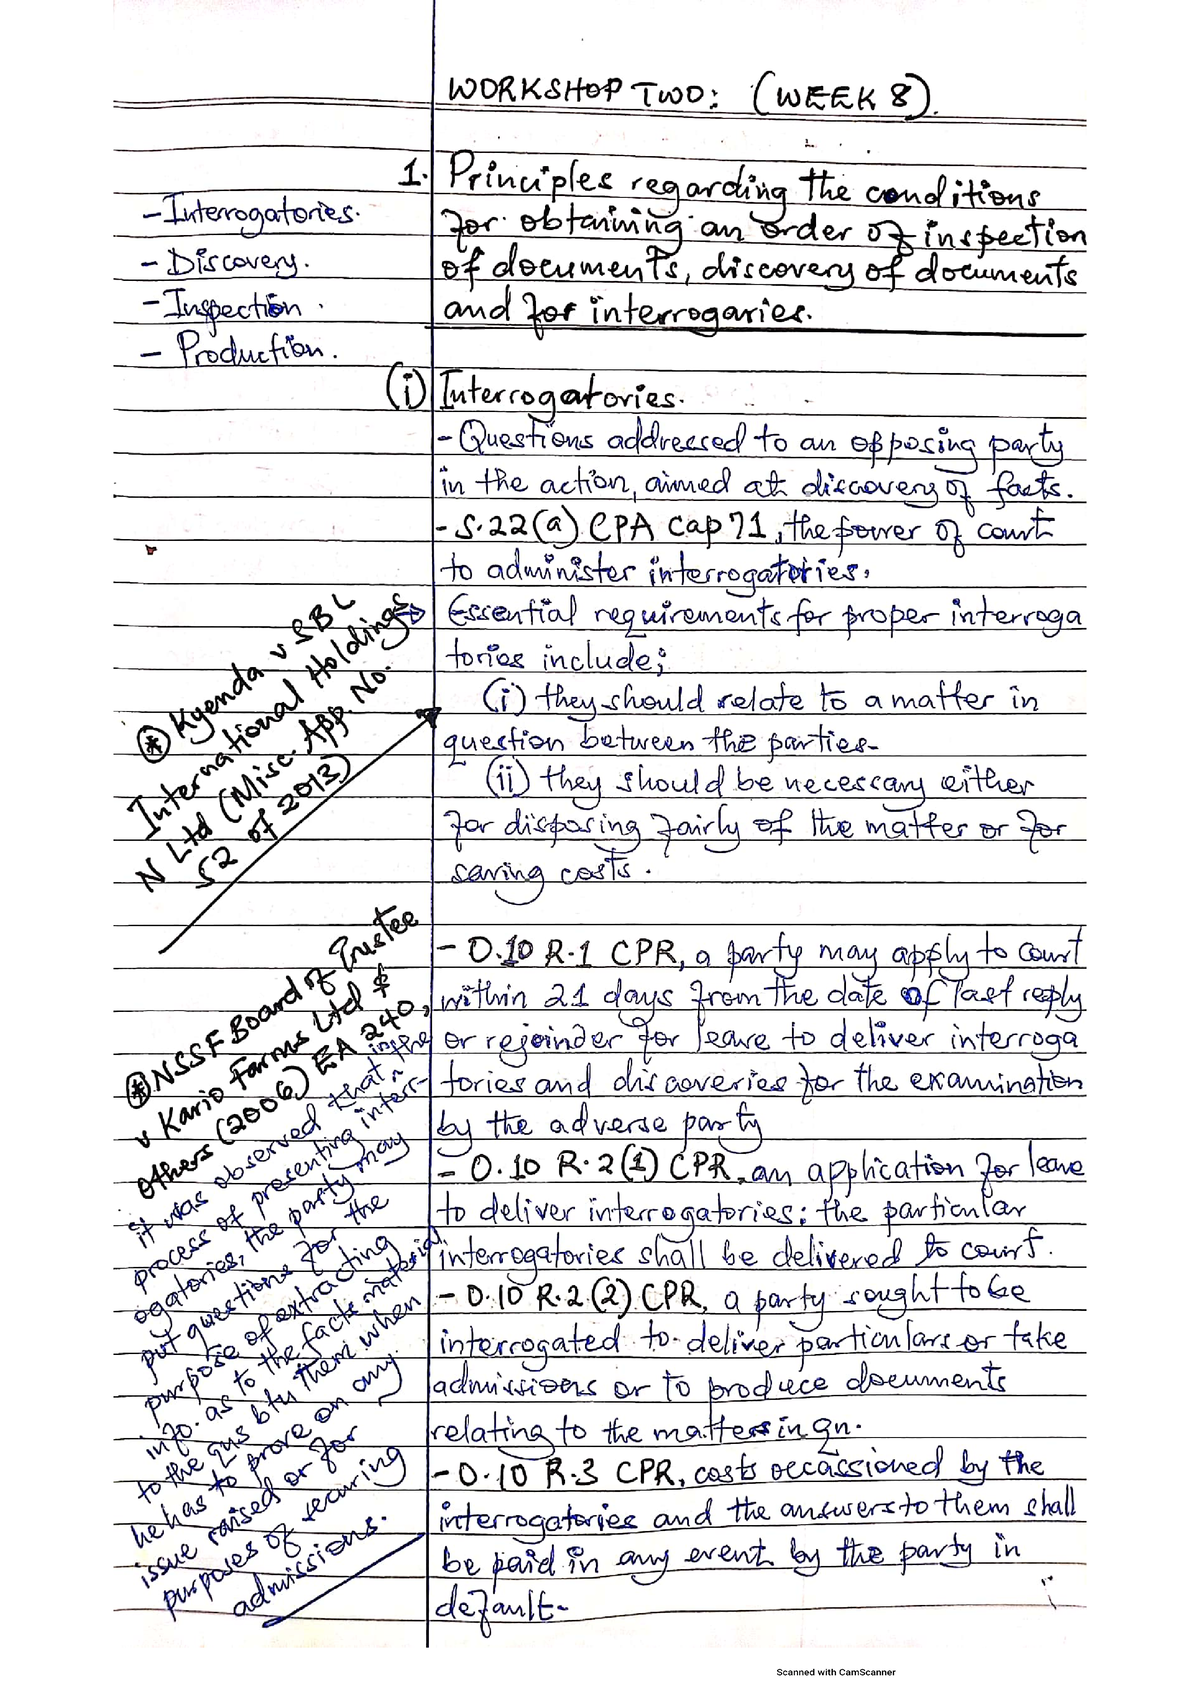 WORKSHOP TWO: (WEEK 8).
1. Principles regarding the conditions
for obtaining an order of inspection
of documents, discovery of documents
and for interrogaries.
- Interrogatories.
- Discovery.
- Inspection.
- Production.
(i) Interrogatories.
- Questions addressed to an opposing party
in the action, aimed at discovery of facts.
- S.22(a) CPA Cap 71, the power of court
to administer interrogatories.
Essential requirements for proper interroga
tories include;
(i) they should relate to a matter in
question between the parties-
(ii) they should be necessary either
for disposing fairly of the matter or for
saving costs.
* Kyenda v SBL
International Holdings
N Ltd (Misc. App. No.
52 of 2013)
- O.10 R.1 CPR, a party may apply to court
within 21 days from the date of last reply
or rejoinder for leave to deliver interroga
tories and discoveries for the examination
by the adverse party
- O.10 R.2(1) CPR, an application for leave
to deliver interrogatories: the particular
interrogatories shall be delivered to court.
- O.10 R.2(2) CPR, a party sought to be
interrogated to deliver particulars or take
admissions or to produce documents
relating to the matters in qn.
- O.10 R.3 CPR, costs occassioned by the
interrogatories and the answers to them shall
be paid in any event by the party in
default-
* NSSF Board of Trustee
v Kario Farms Ltd &
others (2006) EA 240,
it was observed that in the
process of presenting interr-
ogatories, the party may
put questions for the
purpose of extracting
info. as to the facts material
to the qns btn them when
he has to prove on any
issue raised or for
purposes of securing
admissions.
Scanned with CamScanner